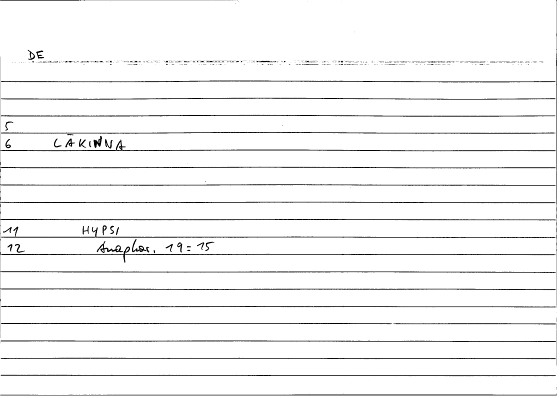 DE
5
6 LĀKINNA
11 HYPSI
12 Anaphor. 19 = 15